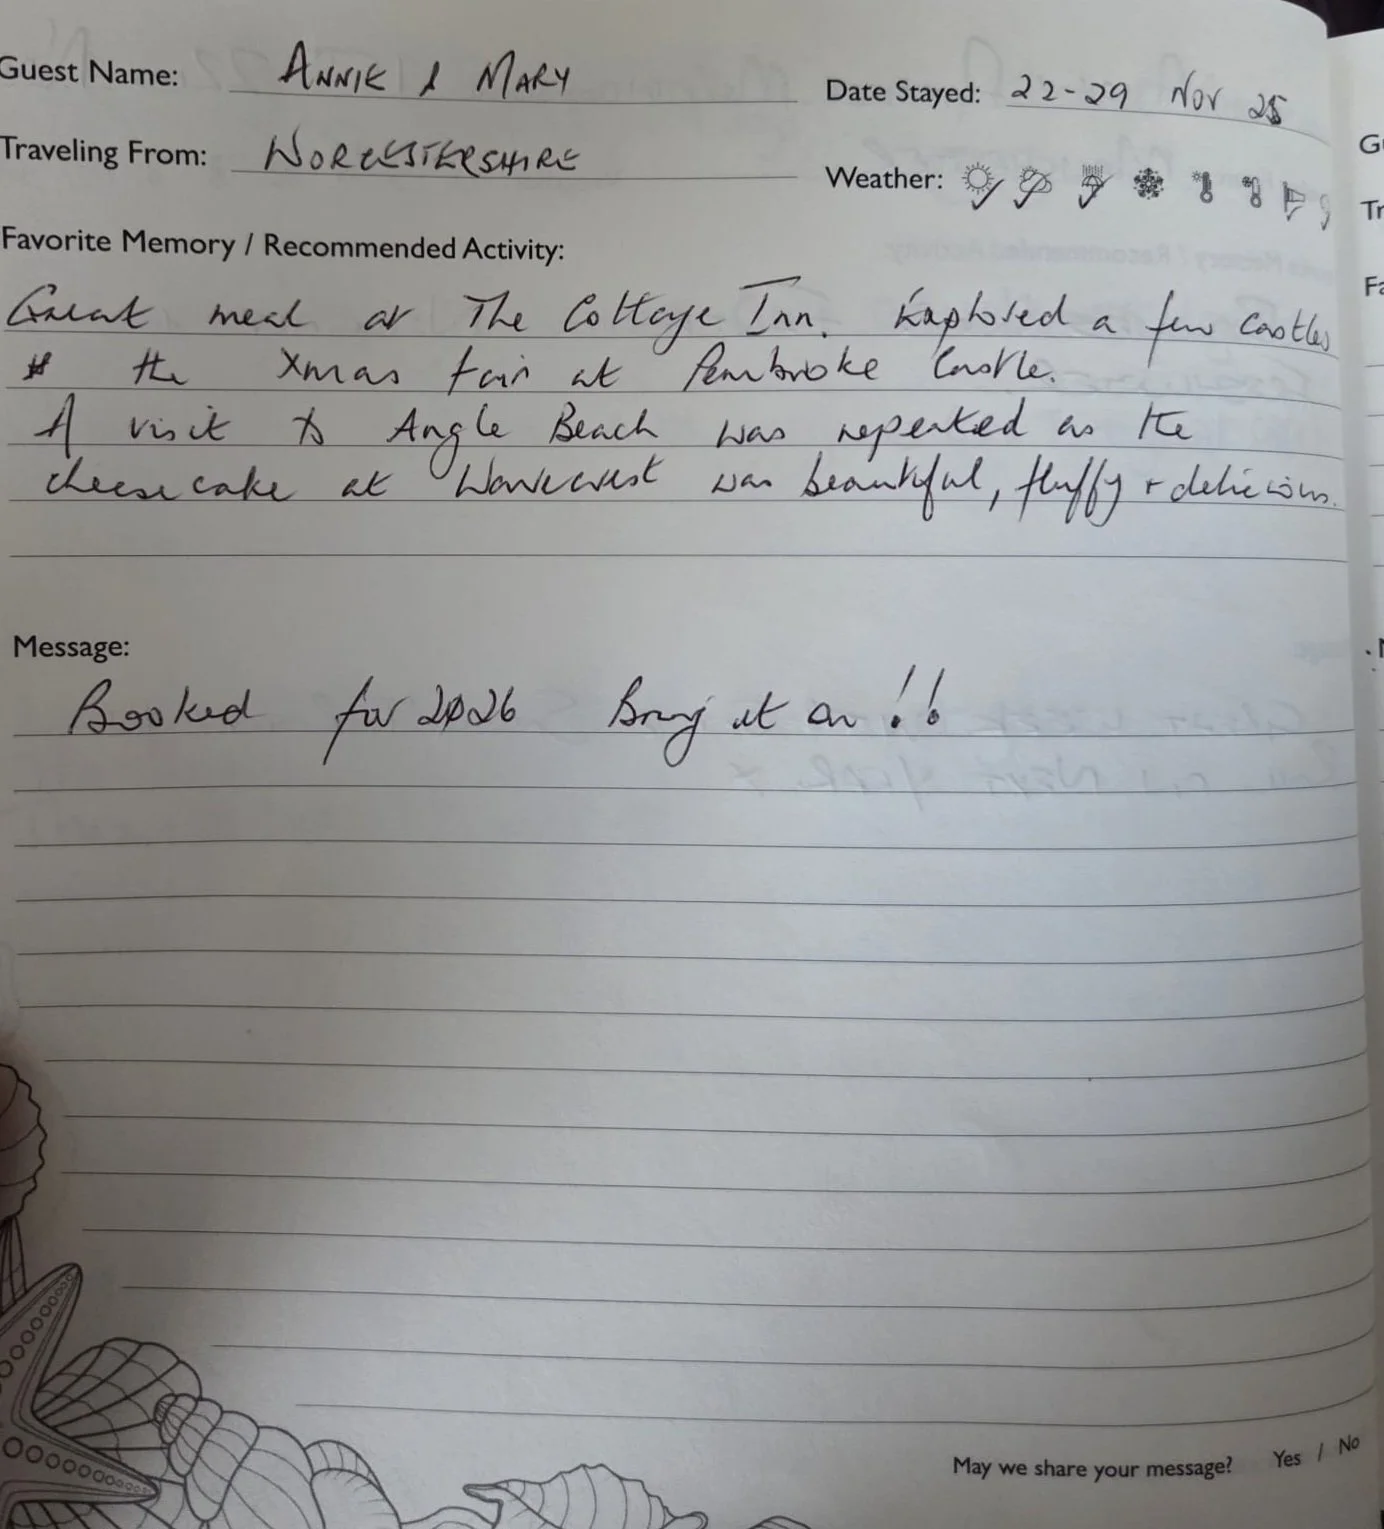 Guest Name: ANNIE & MARY
Date Stayed: 22-29 Nov 25
Traveling From: WORCESTERSHIRE
Weather:
Favorite Memory / Recommended Activity:
Great meal at The Cottage Inn. Explored a few castles
& the Xmas fair at Pembroke Castle.
A visit to Angle Beach was repeated as the
cheesecake at Wavecrest was beautiful, fluffy + delicious.
Message:
Booked for 2026 Bring it on!!
May we share your message? Yes / No